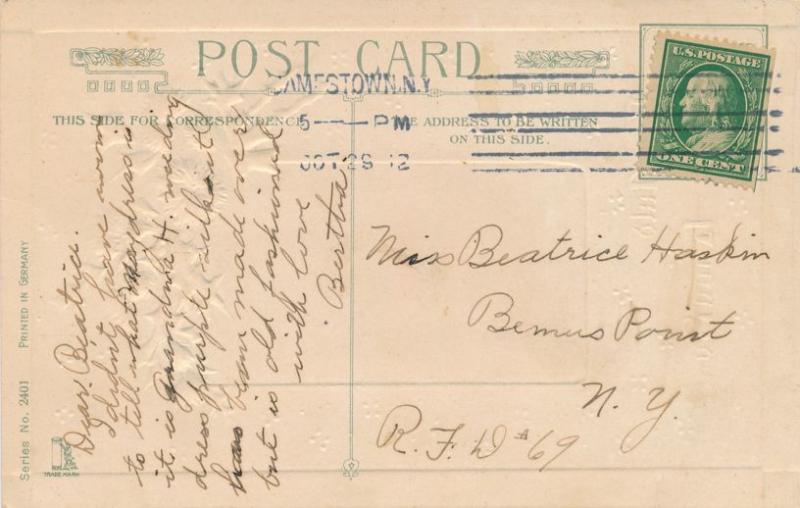 POST CARD
THIS SIDE FOR CORRESPONDENCE
ADDRESS TO BE WRITTEN
ON THIS SIDE.
JAMESTOWN, N.Y.
5 — PM
OCT 28 12
U.S. POSTAGE
ONE CENT
Dear Beatrice.
I didnt have room
to tell what my dress is
it is Grandma H. wedding
dress purple silk
has been made over
but is old fashioned
with love
Bertha
Miss Beatrice Haskin
Bemus Point
N. Y.
R. F. D # 69
Series No. 2401 PRINTED IN GERMANY
TRADE MARK